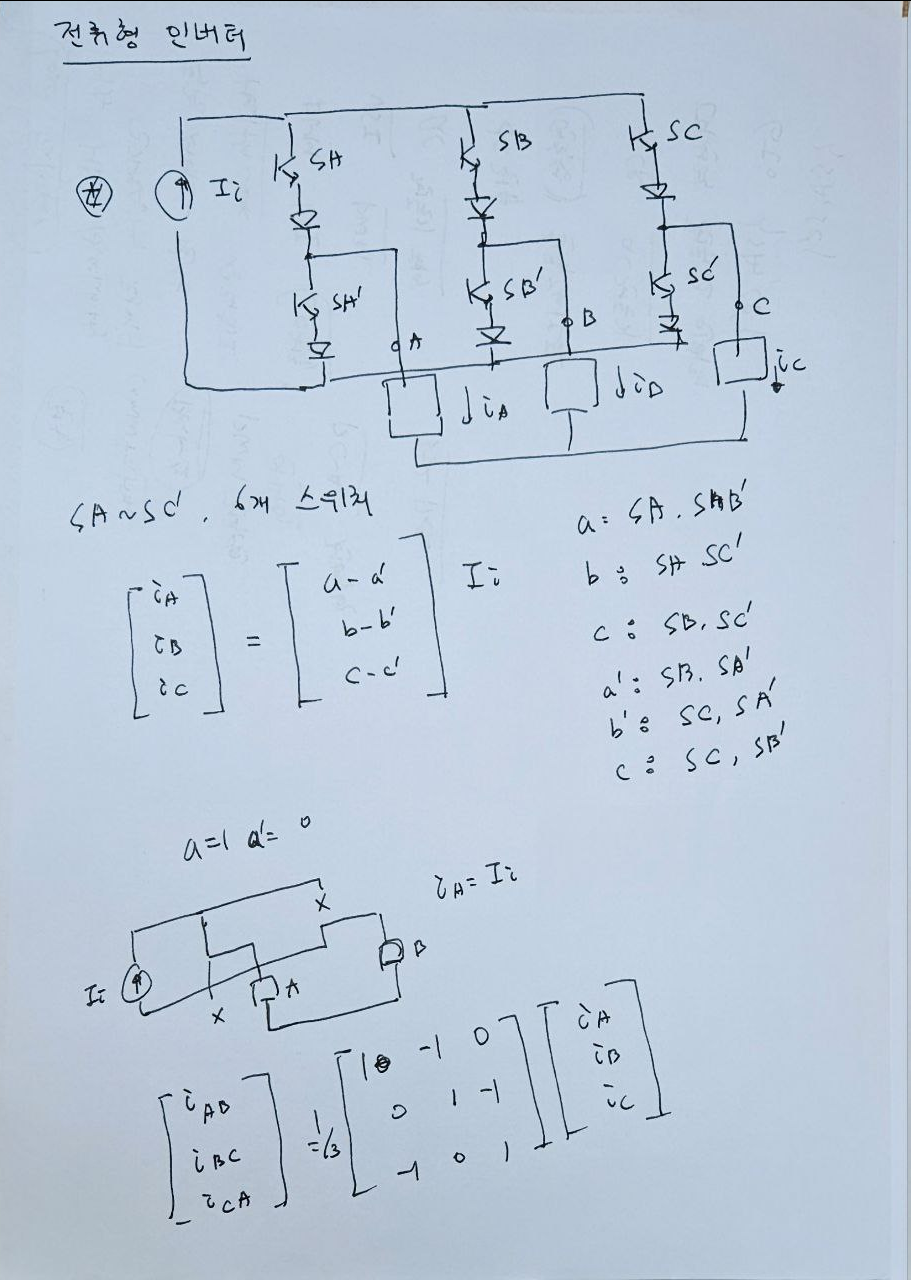 전류형 인버터
SA SB SC
Ii
SA' SB' SC'
A B C
iA iB iC
SA ~ SC'. 6개 스위치
[iA iB iC] = [a - a' b - b' c - c'] Ii
a: SA. SB'
b: SA SC'
c: SB. SC'
a': SB. SA'
b': SC, SA'
c: SC, SB'
a=1 a'= 0
iA = Ii
x
Ii A B
x
[iAB iBC iCA] = 1/3 [1 -1 0 0 1 -1 -1 0 1] [iA iB iC]